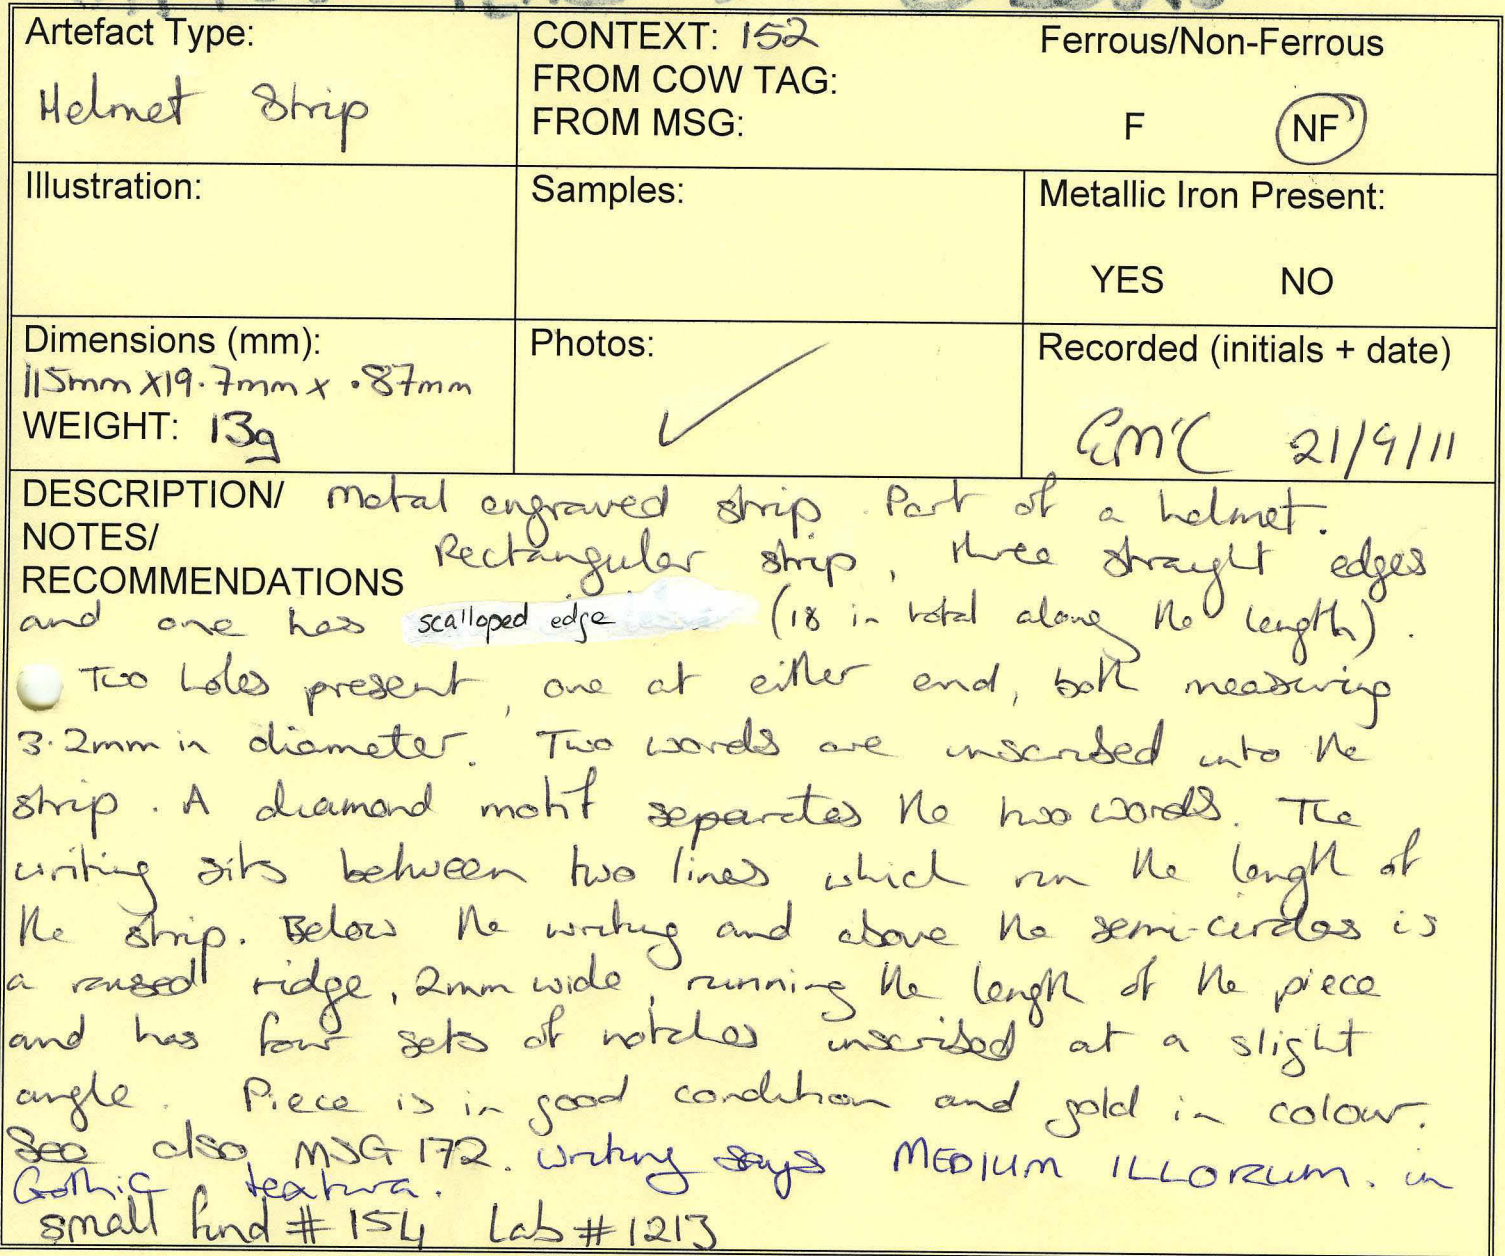 Artefact Type:
Helmet Strip
CONTEXT: 152
FROM COW TAG:
FROM MSG:
Ferrous/Non-Ferrous
F NF
Illustration:
Samples:
Metallic Iron Present:
YES NO
Dimensions (mm):
115mm x 19.7mm x .87mm
WEIGHT: 13g
Photos: ✓
Recorded (initials + date)
EMC 21/9/11
DESCRIPTION/ Metal engraved strip. Part of a helmet.
NOTES/
RECOMMENDATIONS Rectangular strip, three straight edges
and one has scalloped edge (18 in total along the length).
Two holes present, one at either end, both measuring
3.2mm in diameter. Two words are inscribed into the
strip. A diamond motif separates the two words. The
writing sits between two lines which run the length of
the strip. Below the writing and above the semi-circles is
a raised ridge, 2mm wide, running the length of the piece
and has four sets of notches inscribed at a slight
angle. Piece is in good condition and gold in colour.
See also MSG 172. Writing says MEDIUM ILLORUM. in
Gothic textura.
small find # 154 Lab # 1213